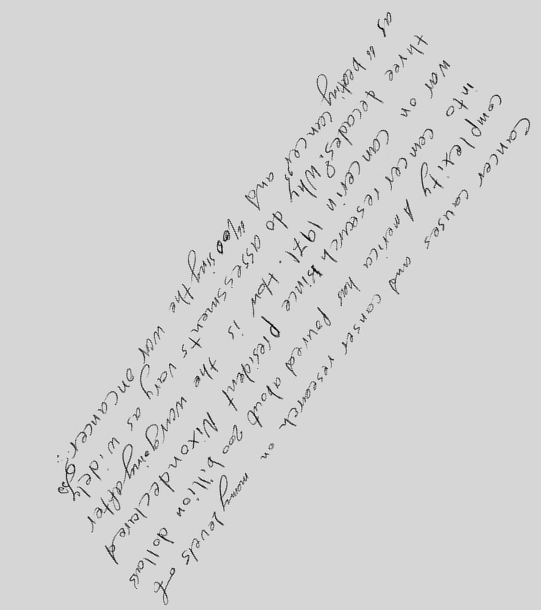 Cancer causes and canser research on many levels of
complexity America has poured about 200 billion dollars
into cancer research since president Nixon declared
war on cancer in 1971. How is the war going after
three decades? Why do assessments vary as widely
as "beating cancer" and "loosing the war on cancer"